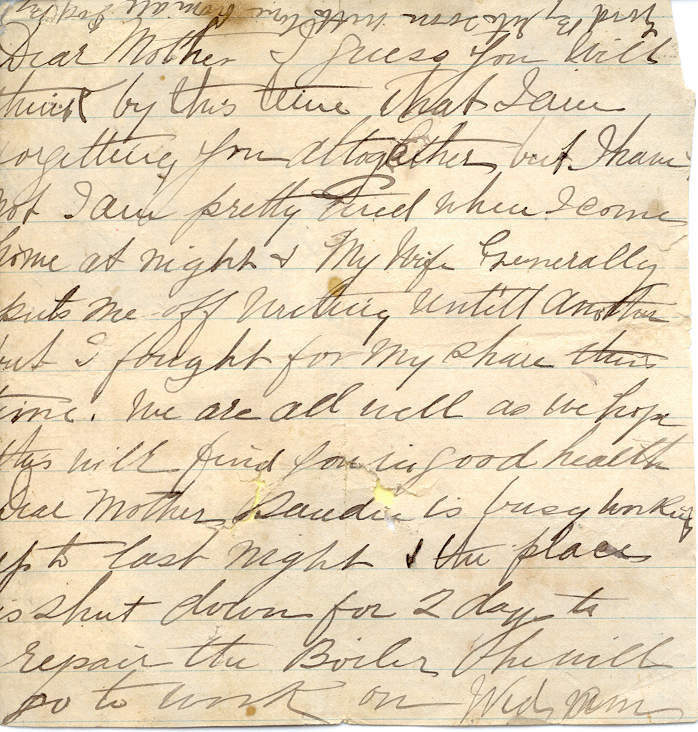 Dear Mother I guess you will
think by this time that I am
forgetting you altogether but I have
not I am pretty tired when I come
home at night & My Wife Generally
puts me off Writing Untill Another
but I fought for My Share this
time. We are all well as we hope
this will find you in good health
Dear Mother is busy working
up to last night & the place
is shut down for 2 days to
repair the Boiler She will
go to work on Wed